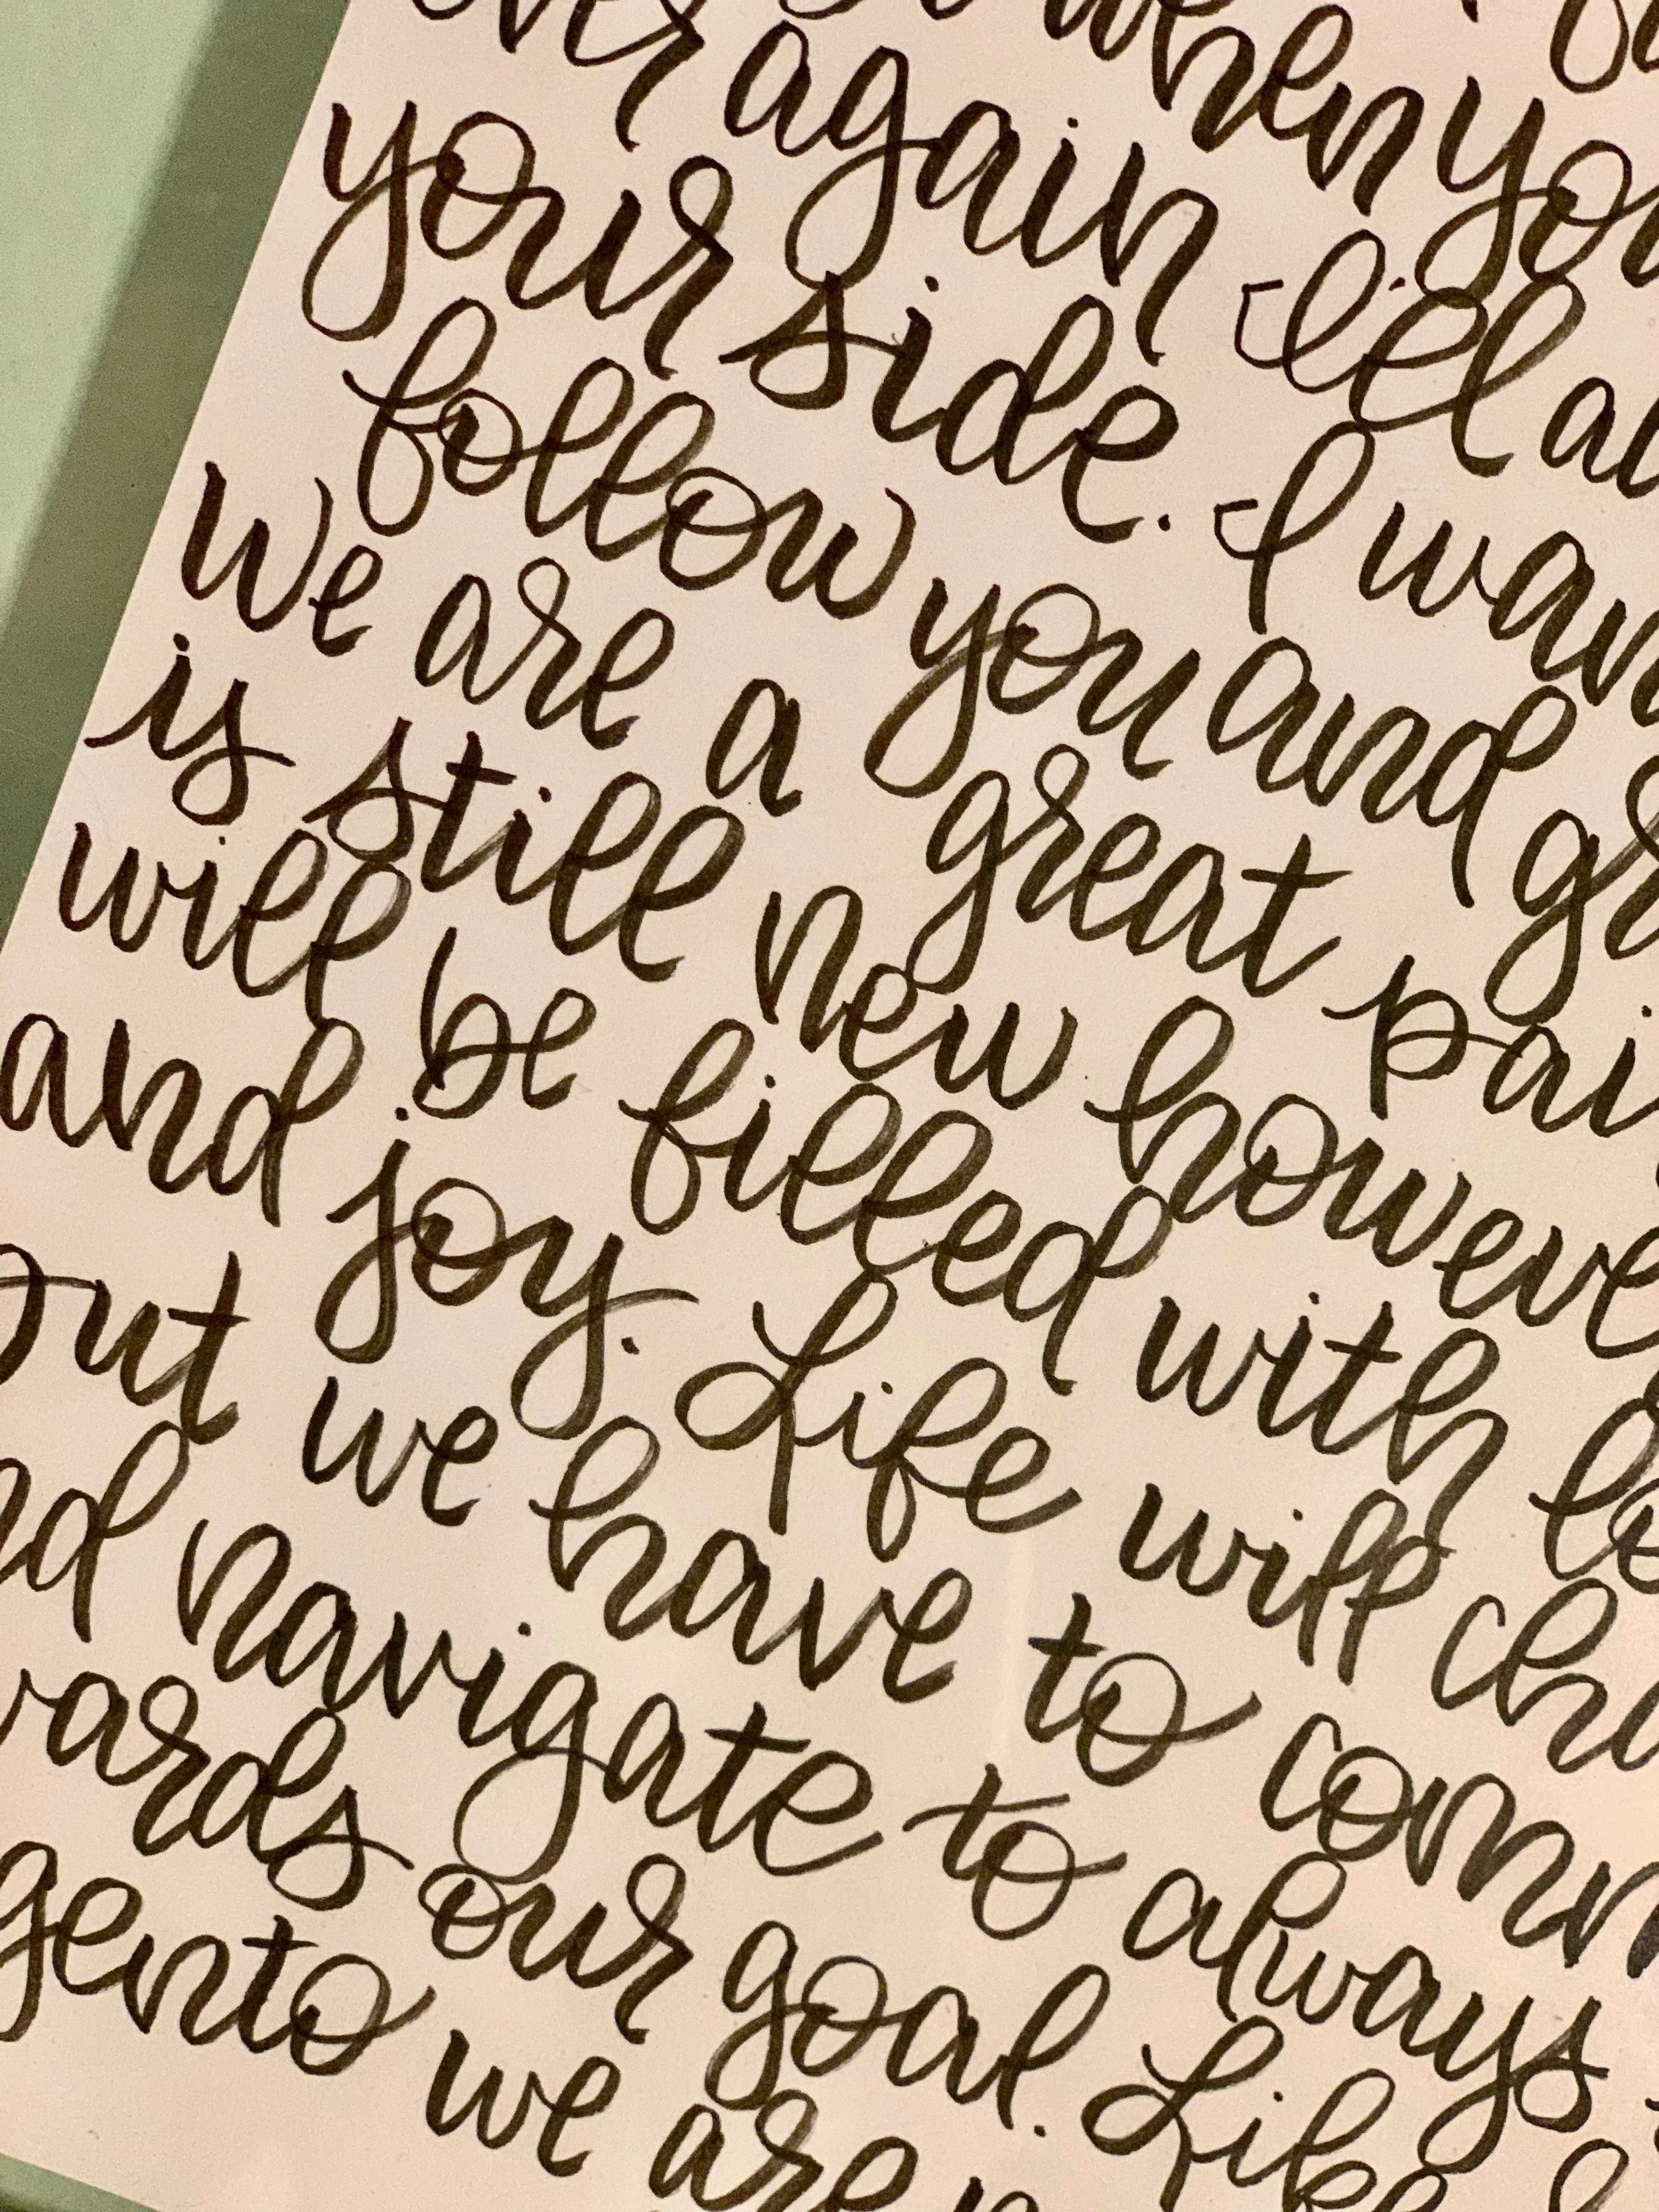 when you
ver again I'll al
your side. I wan
follow you and gr
We are a great pai
is still new howeve
will be filled with lo
and joy. Life will cha
out we have to comm
nd navigate to always
wards our goal. Like
gento we are